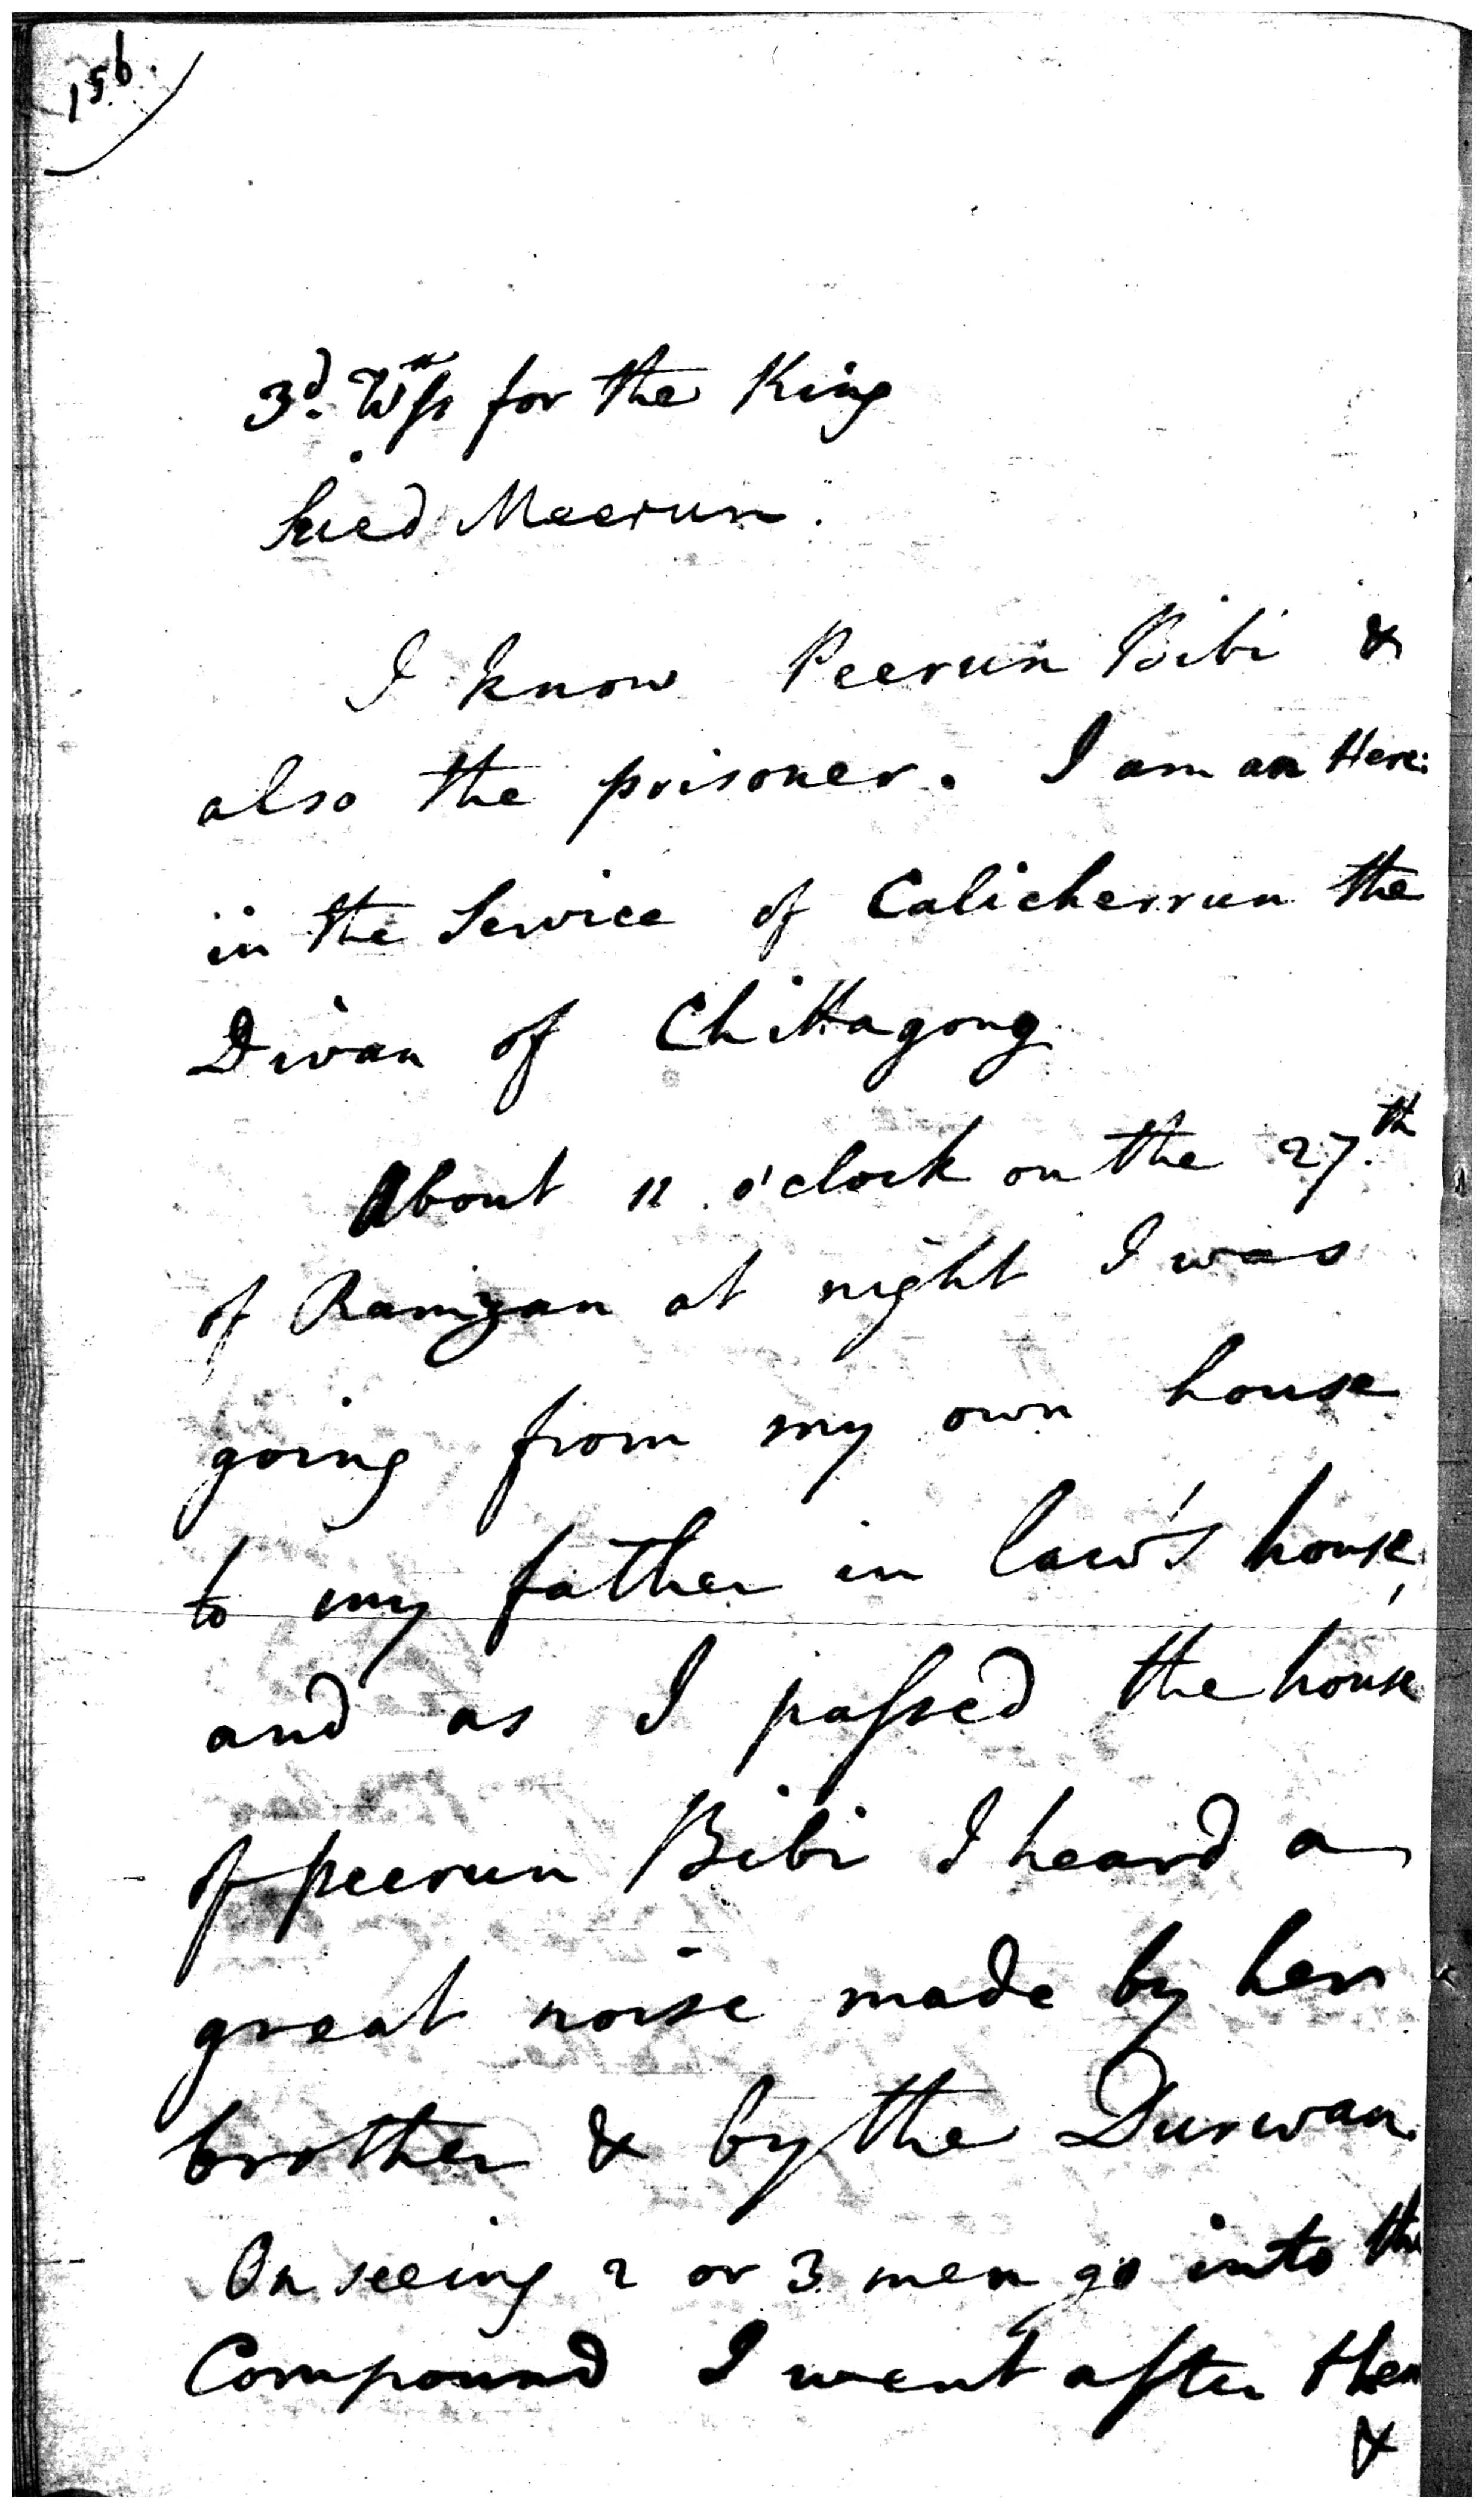 156.
3d. Wss for the King
Sied Meerun.
I know Peerun Bibi &
also the prisoner. I am an Herc:
in the Service of Calicherrun the
Divan of Chittagong
About 11 o'clock on the 27th
of Ramzan at night I was
going from my own house
to my father in law's house,
and as I passed the house
of peerun Bibi I heard a
great noise made by her
brother & by the Durwan.
On seeing 2 or 3 men go into the
Compound I went after them
&